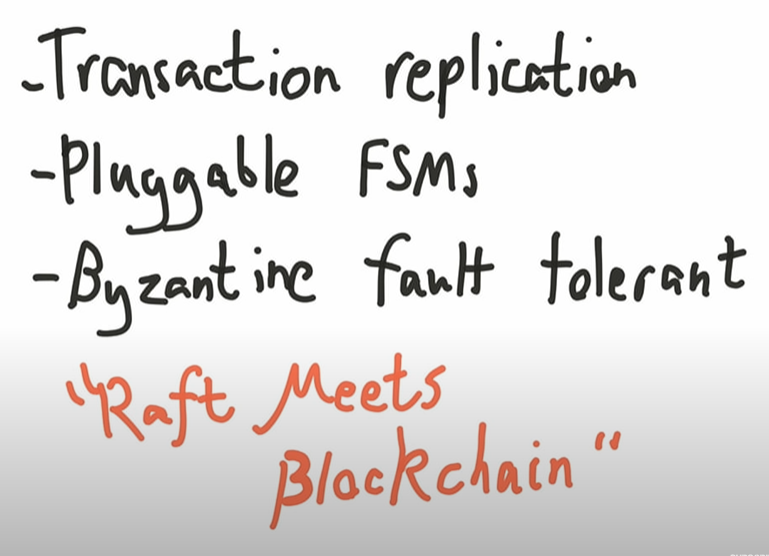 - Transaction replication
- Pluggable FSMs
- Byzantine fault tolerant
"Raft Meets
Blockchain"